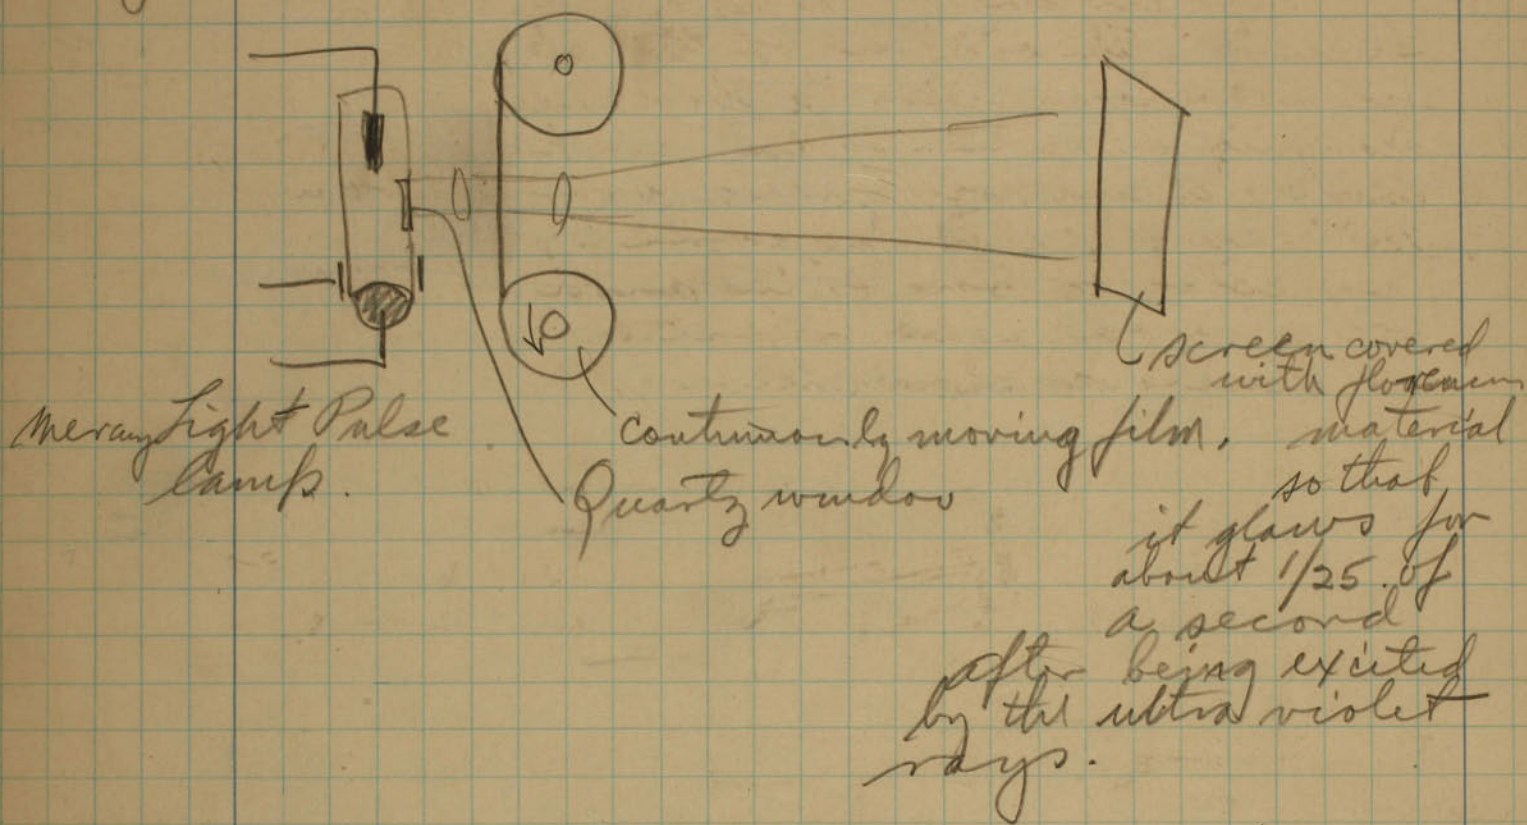 Mercury Light Pulse
lamp.
continuously moving film.
Quartz window
screen covered
with
material
so that
it glows for
about 1/25 of
a second
after being excited
by the ultra violet
rays.